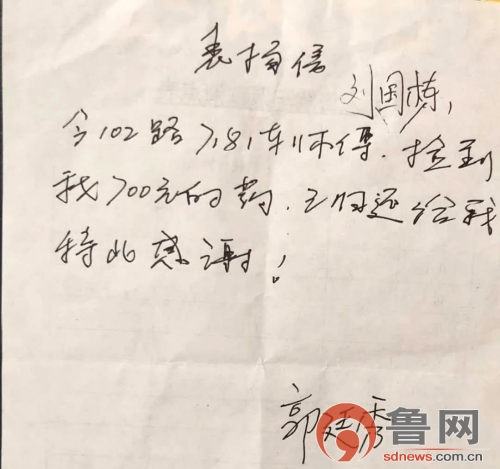 表扬信
刘国栋,
今102路7.81车师傅.捡到
我700元的药.已归还给我
特此感谢!
郭廷秀
鲁网
sdnews.com.cn